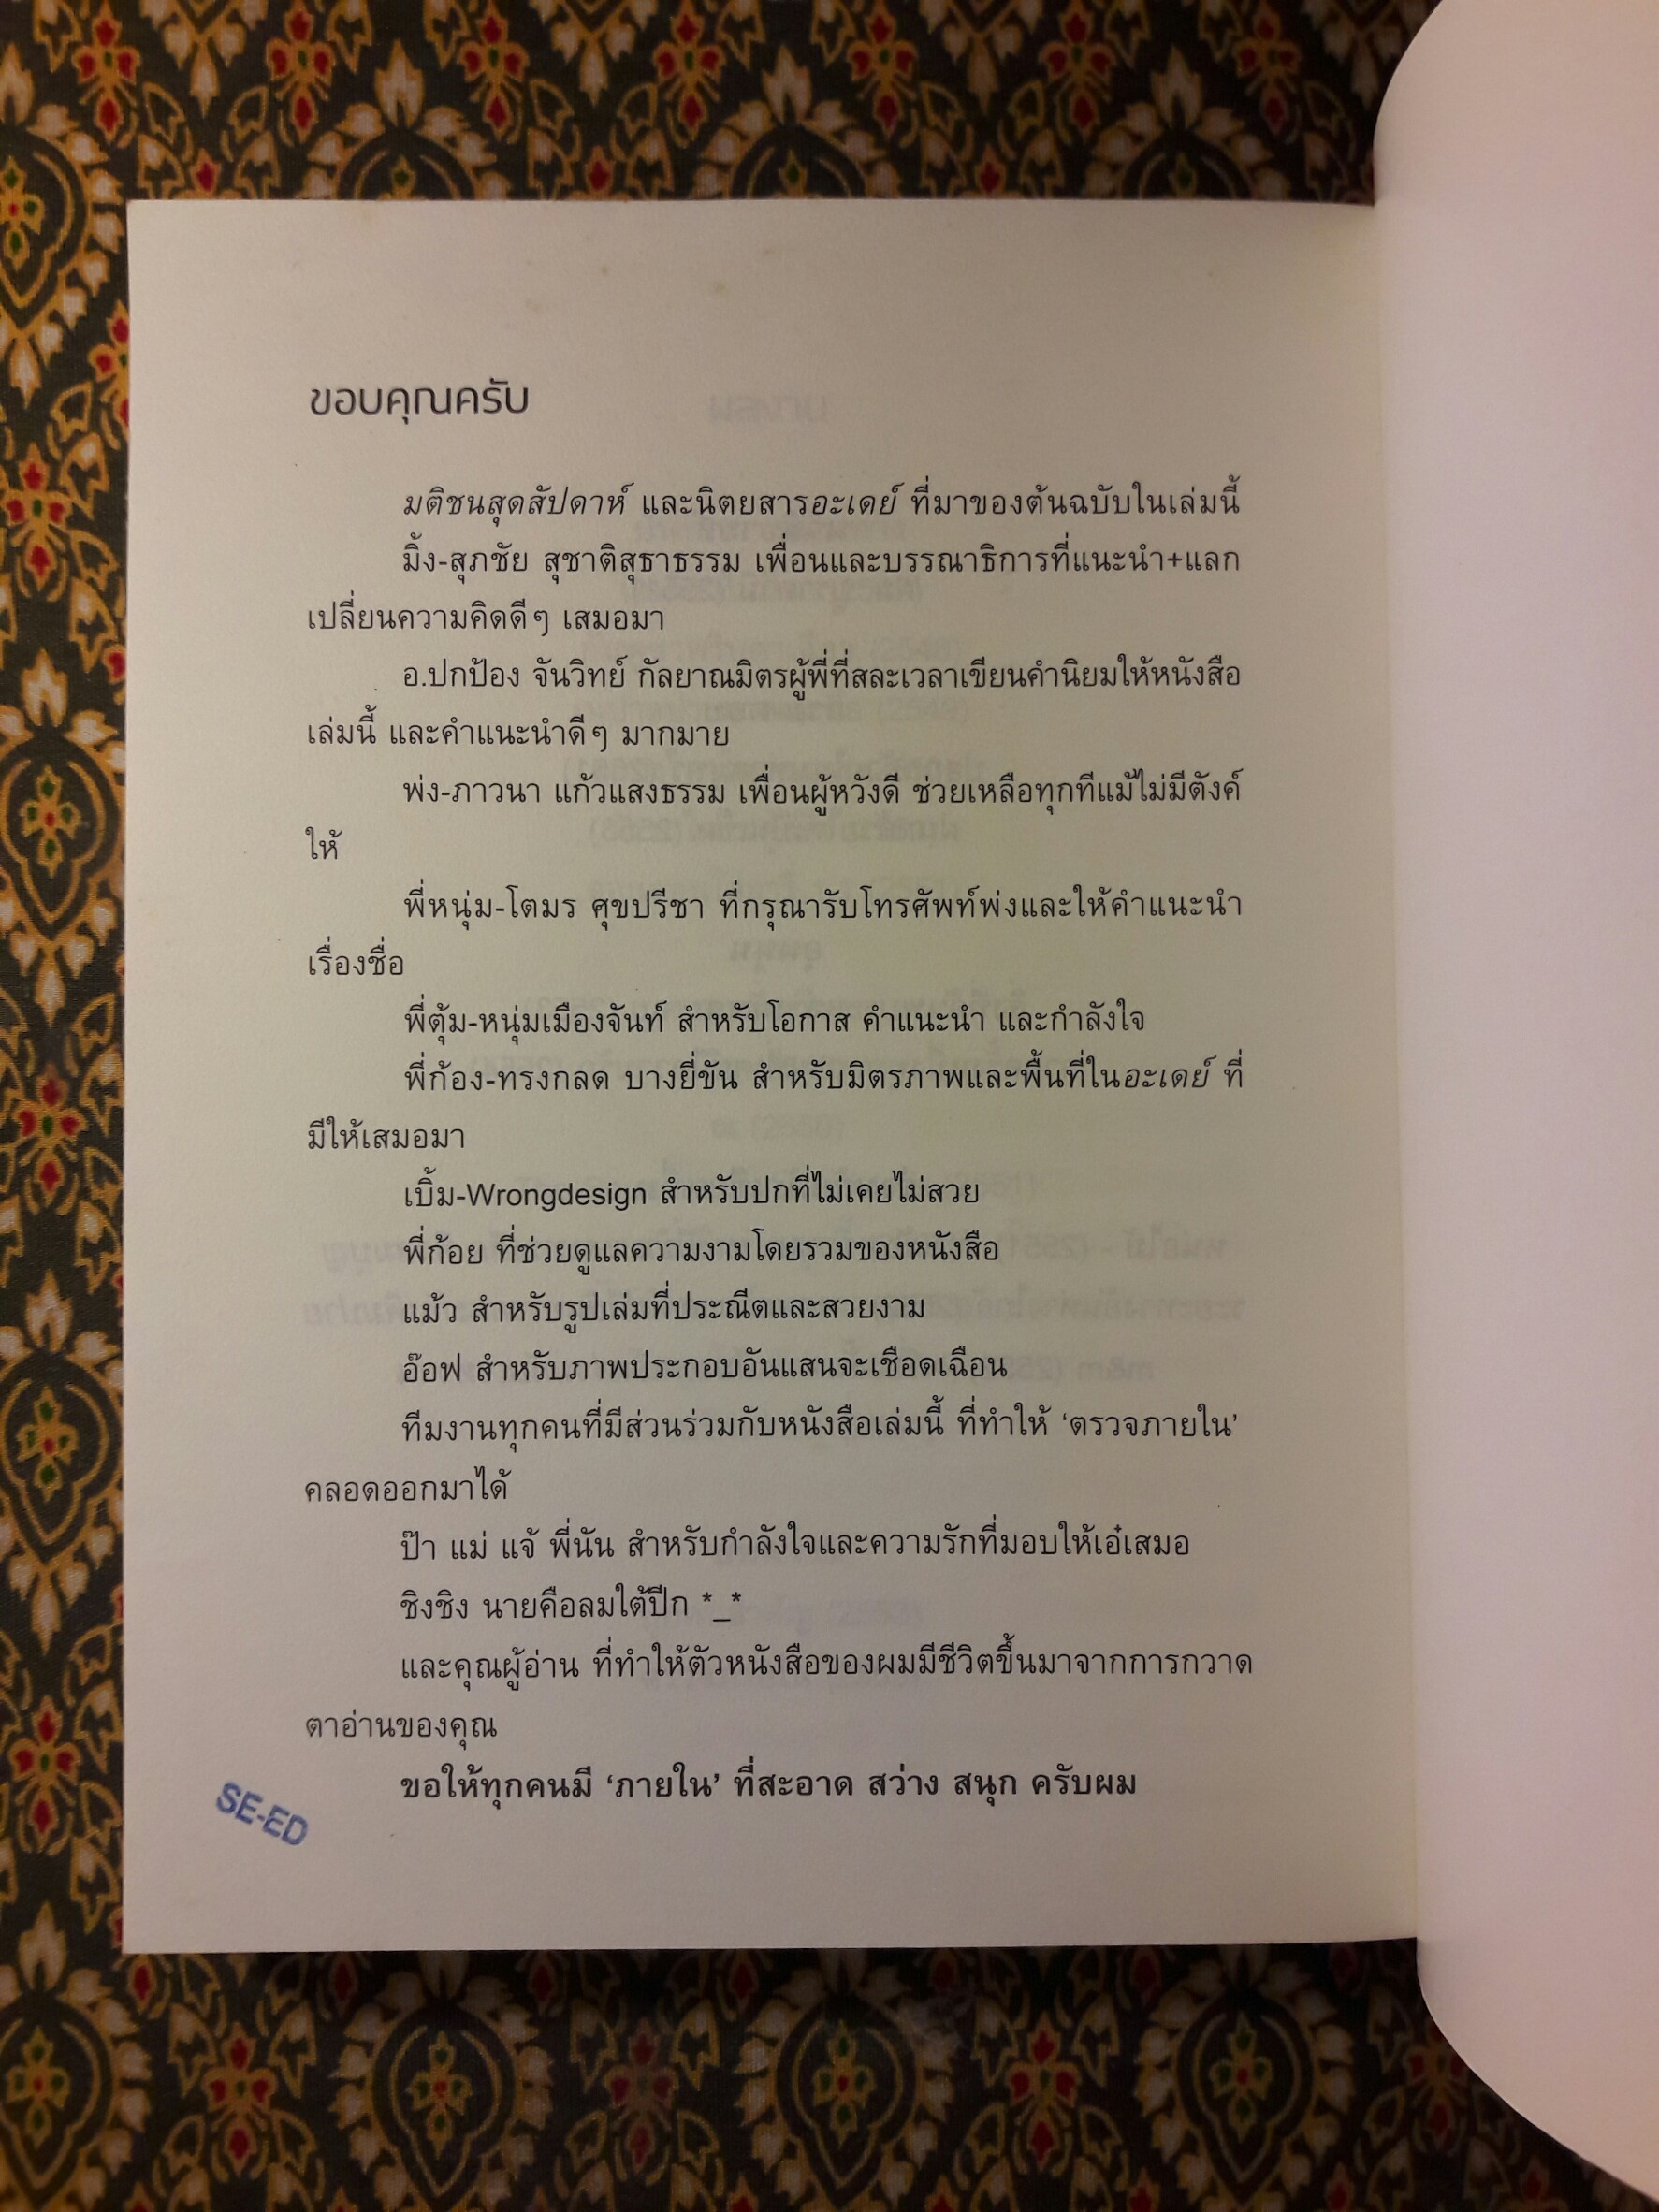 ขอบคุณครับ
มติชนสุดสัปดาห์ และนิตยสารอะเดย์ ที่มาของต้นฉบับในเล่มนี้
มิ้ง-สุภชัย สุชาติสุธาธรรม เพื่อนและบรรณาธิการที่แนะนำ+แลก
เปลี่ยนความคิดดีๆ เสมอมา
อ.ปกป้อง จันวิทย์ กัลยาณมิตรผู้พี่ที่สละเวลาเขียนคำนิยมให้หนังสือ
เล่มนี้ และคำแนะนำดีๆ มากมาย
พ่ง-ภาวนา แก้วแสงธรรม เพื่อนผู้หวังดี ช่วยเหลือทุกทีแม้ไม่มีตังค์
ให้
พี่หนุ่ม-โตมร ศุขปรีชา ที่กรุณารับโทรศัพท์พ่งและให้คำแนะนำ
เรื่องชื่อ
พี่ตุ้ม-หนุ่มเมืองจันท์ สำหรับโอกาส คำแนะนำ และกำลังใจ
พี่ก้อง-ทรงกลด บางยี่ขัน สำหรับมิตรภาพและพื้นที่ในอะเดย์ ที่
มีให้เสมอมา
เบิ้ม-Wrongdesign สำหรับปกที่ไม่เคยไม่สวย
พี่ก้อย ที่ช่วยดูแลความงามโดยรวมของหนังสือ
แม้ว สำหรับรูปเล่มที่ประณีตและสวยงาม
อ๊อฟ สำหรับภาพประกอบอันแสนจะเชือดเฉือน
ทีมงานทุกคนที่มีส่วนร่วมกับหนังสือเล่มนี้ ที่ทำให้ ‘ตรวจภายใน’
คลอดออกมาได้
ป๊า แม่ แจ้ พี่นัน สำหรับกำลังใจและความรักที่มอบให้เอ๋เสมอ
ชิงชิง นายคือลมใต้ปีก *_*
และคุณผู้อ่าน ที่ทำให้ตัวหนังสือของผมมีชีวิตขึ้นมาจากการกวาด
ตาอ่านของคุณ
ขอให้ทุกคนมี ‘ภายใน’ ที่สะอาด สว่าง สนุก ครับผม
SE-ED